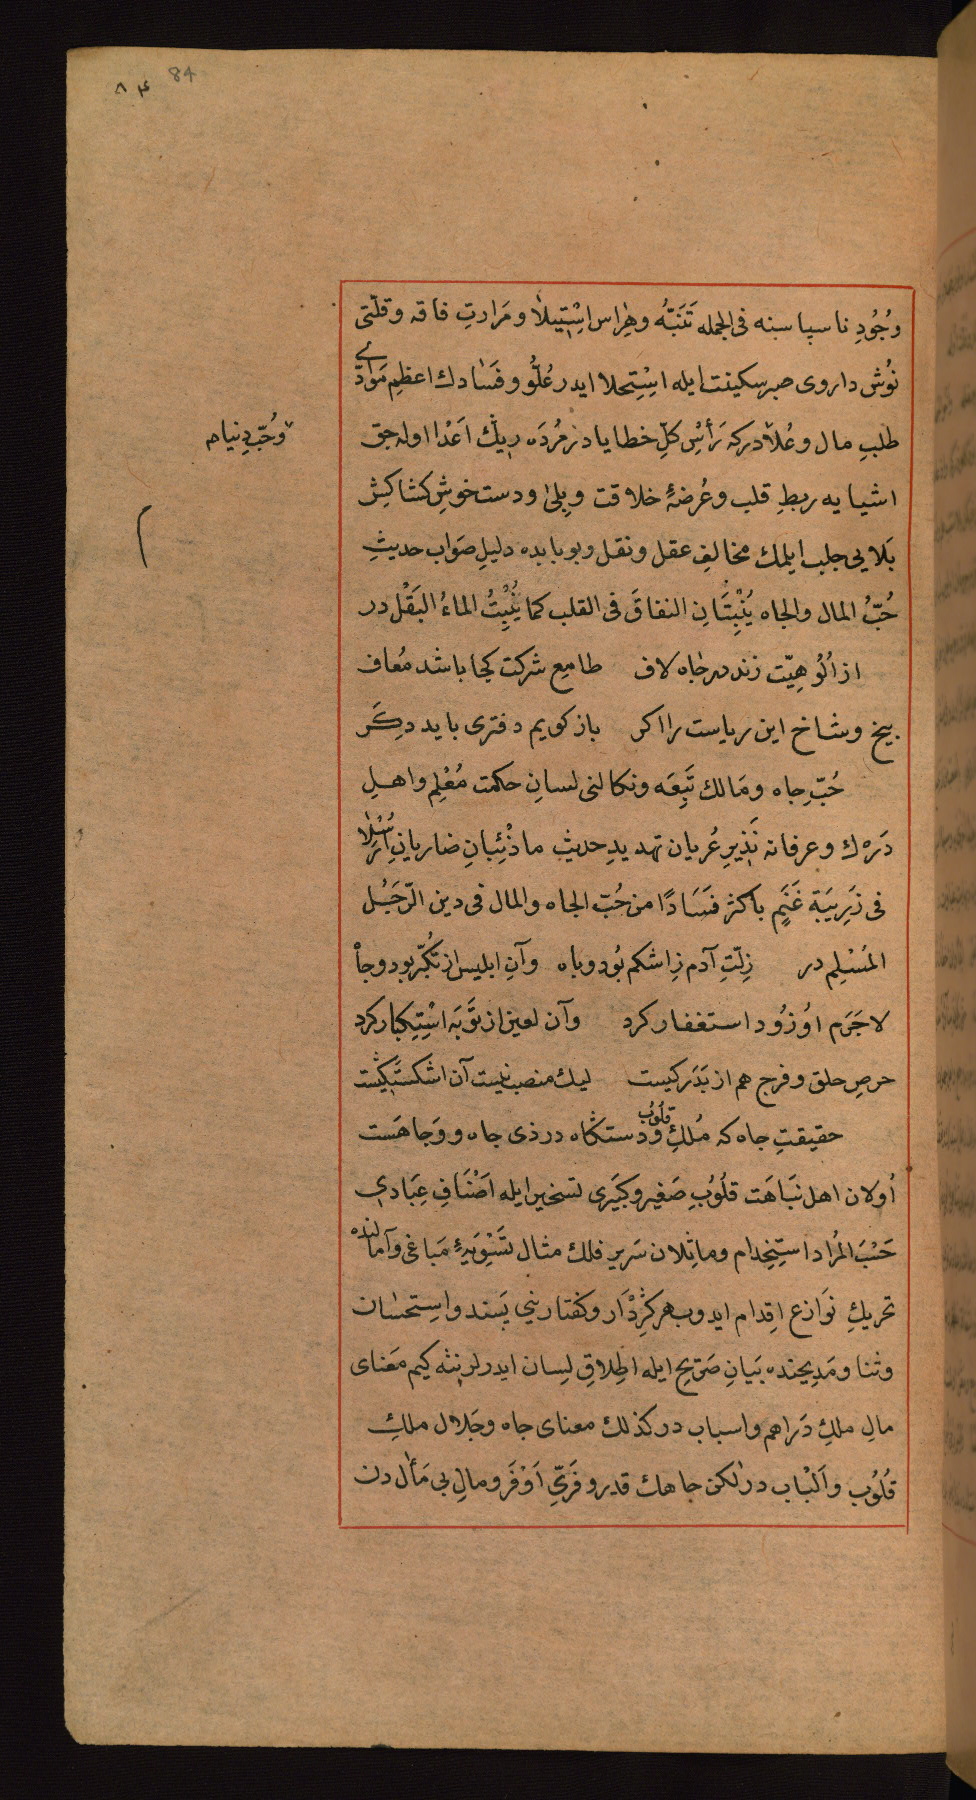 ٨٤ 84
وجُودِ ناسپاسنه فى الجمله تَنَبُّه وهِراس اسْتِيلاٰ ومَرارتِ فاقه وقلّتى
نُوش داروى صبر سكينت ايله اسْتِحلا ايدر عُلُّو وفَسَادك اعظمِ مَوَادّى
طلبِ مال وعُلاٰدركه رَأْسِ كلّ خطايادز مُردَه ريڭ اَعْدا اوله جق
وحُبّ دنيا م
اشيايه ربطِ قلب وعُرضۀ خلاقت وبِلىٰ ودست خوشِ كشاكشِ
بَلايى جلب ايلمك مخالفِ عقل ونقل وبو بابده دليلِ صَواب حديثِ
حُبّ المال والجاه يُنْبِتَانِ النفاقَ فى القلب كما يُنْبِتُ الماءُ البَقْل در
از اُلُوهِيّت زند در جاه لاف طامعِ شركت كجا باشد مُعاف
بيخ وشاخ اين رياست را اكر بازكويم دفترى بايد دِكَر
حُبِّ جاه ومَالك تَبِعَه ونكالنى لسانِ حكمت مُعْلِم واهلِ
دَرَه ك وعرفانه نَذيرِ عُريان تهديدِ حديثِ ما ذئبانِ ضاريانِ اُرْسِلاٰ
فى زَرِيبَة غَنَمٍ باكثر فَسَادًا من حُبّ الجاه والمال فى دين الرَّجُل
المُسْلِم در زِلّتِ آدم زِاشكم بُود وباه وآنِ ابليس از تكبّر بود وجاْ
لاجَرَم اوُ زُود استغفار كرد وآن لعين از تَوبَه اسْتِكبار كرد
حرصِ حلق وفرج هم از بَدرَ كيست ليك منصب نيست آن اشكستكيست
حقيقتِ جاه كه مُلكِ قلُوب ودستكاه در ذى جاه ووَجاهَست
اُولان اهل نَبَاهَت قلُوُبِ صَغير وكَبيرى تسخير ايله اَصْنَافِ عِبَادى
حَسْبَ المُراد استِخِدام وماثلان سَريرِ فلك مثال تَسْوِيۀِ مَباغى وآمالنده
تحريكِ نَوَازع اِقِدام ايدوب هر كِرْدَار وكفتارينى پسند واِستحسان
وثنا ومَديحنده بَيانِ صَريح ايله اطِلاقِ لِسان ايدرلر نته كيم مَعناى
مالِ ملكِ دَراهم واسباب در كذلك معناى جاه وجَلال ملكِ
قُلوُب واَلْبَاب در لكن جاهك قدر وفَرّى اَوْفَر ومالِ بى مَأٰل دن